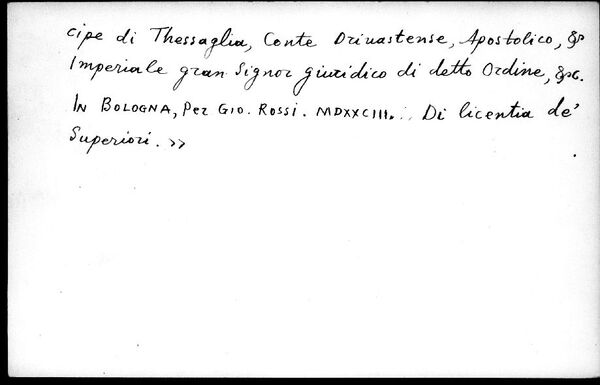 cipe di Thessaglia, Conte Drivastense, Apostolico, &
Imperiale gran Signor giuridico di detto Ordine, &c.
IN BOLOGNA, Per GIO. ROSSI. MDXXCIII. Di licentia de'
Superiori. >>